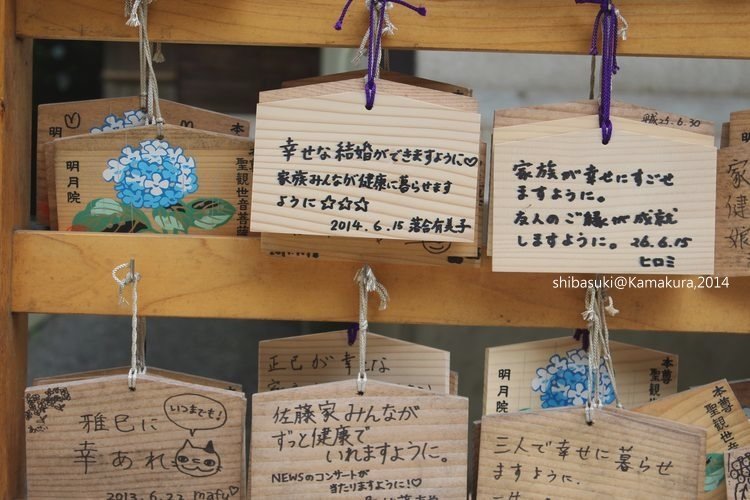 明月院
本尊
聖観世音菩薩
幸せな結婚ができますように♡
家族みんなが健康に暮らせます
ように☆☆☆
2014.6.15 落合有美子
6.30
家族が幸せにすごせ
ますように。
友人のご縁が成就
しますように。26.6.15
ヒロミ
shibasuki@Kamakura,2014
雅巳に
幸あれ
いつまでも!
2013.6.22 mafu♡
正巳が幸せな
佐藤家みんなが
ずっと健康で
いれますように。
NEWSのコンサートが
当たりますように!
明月院
本尊
三人で幸せに暮らせ
ますように.
本尊
聖観世音